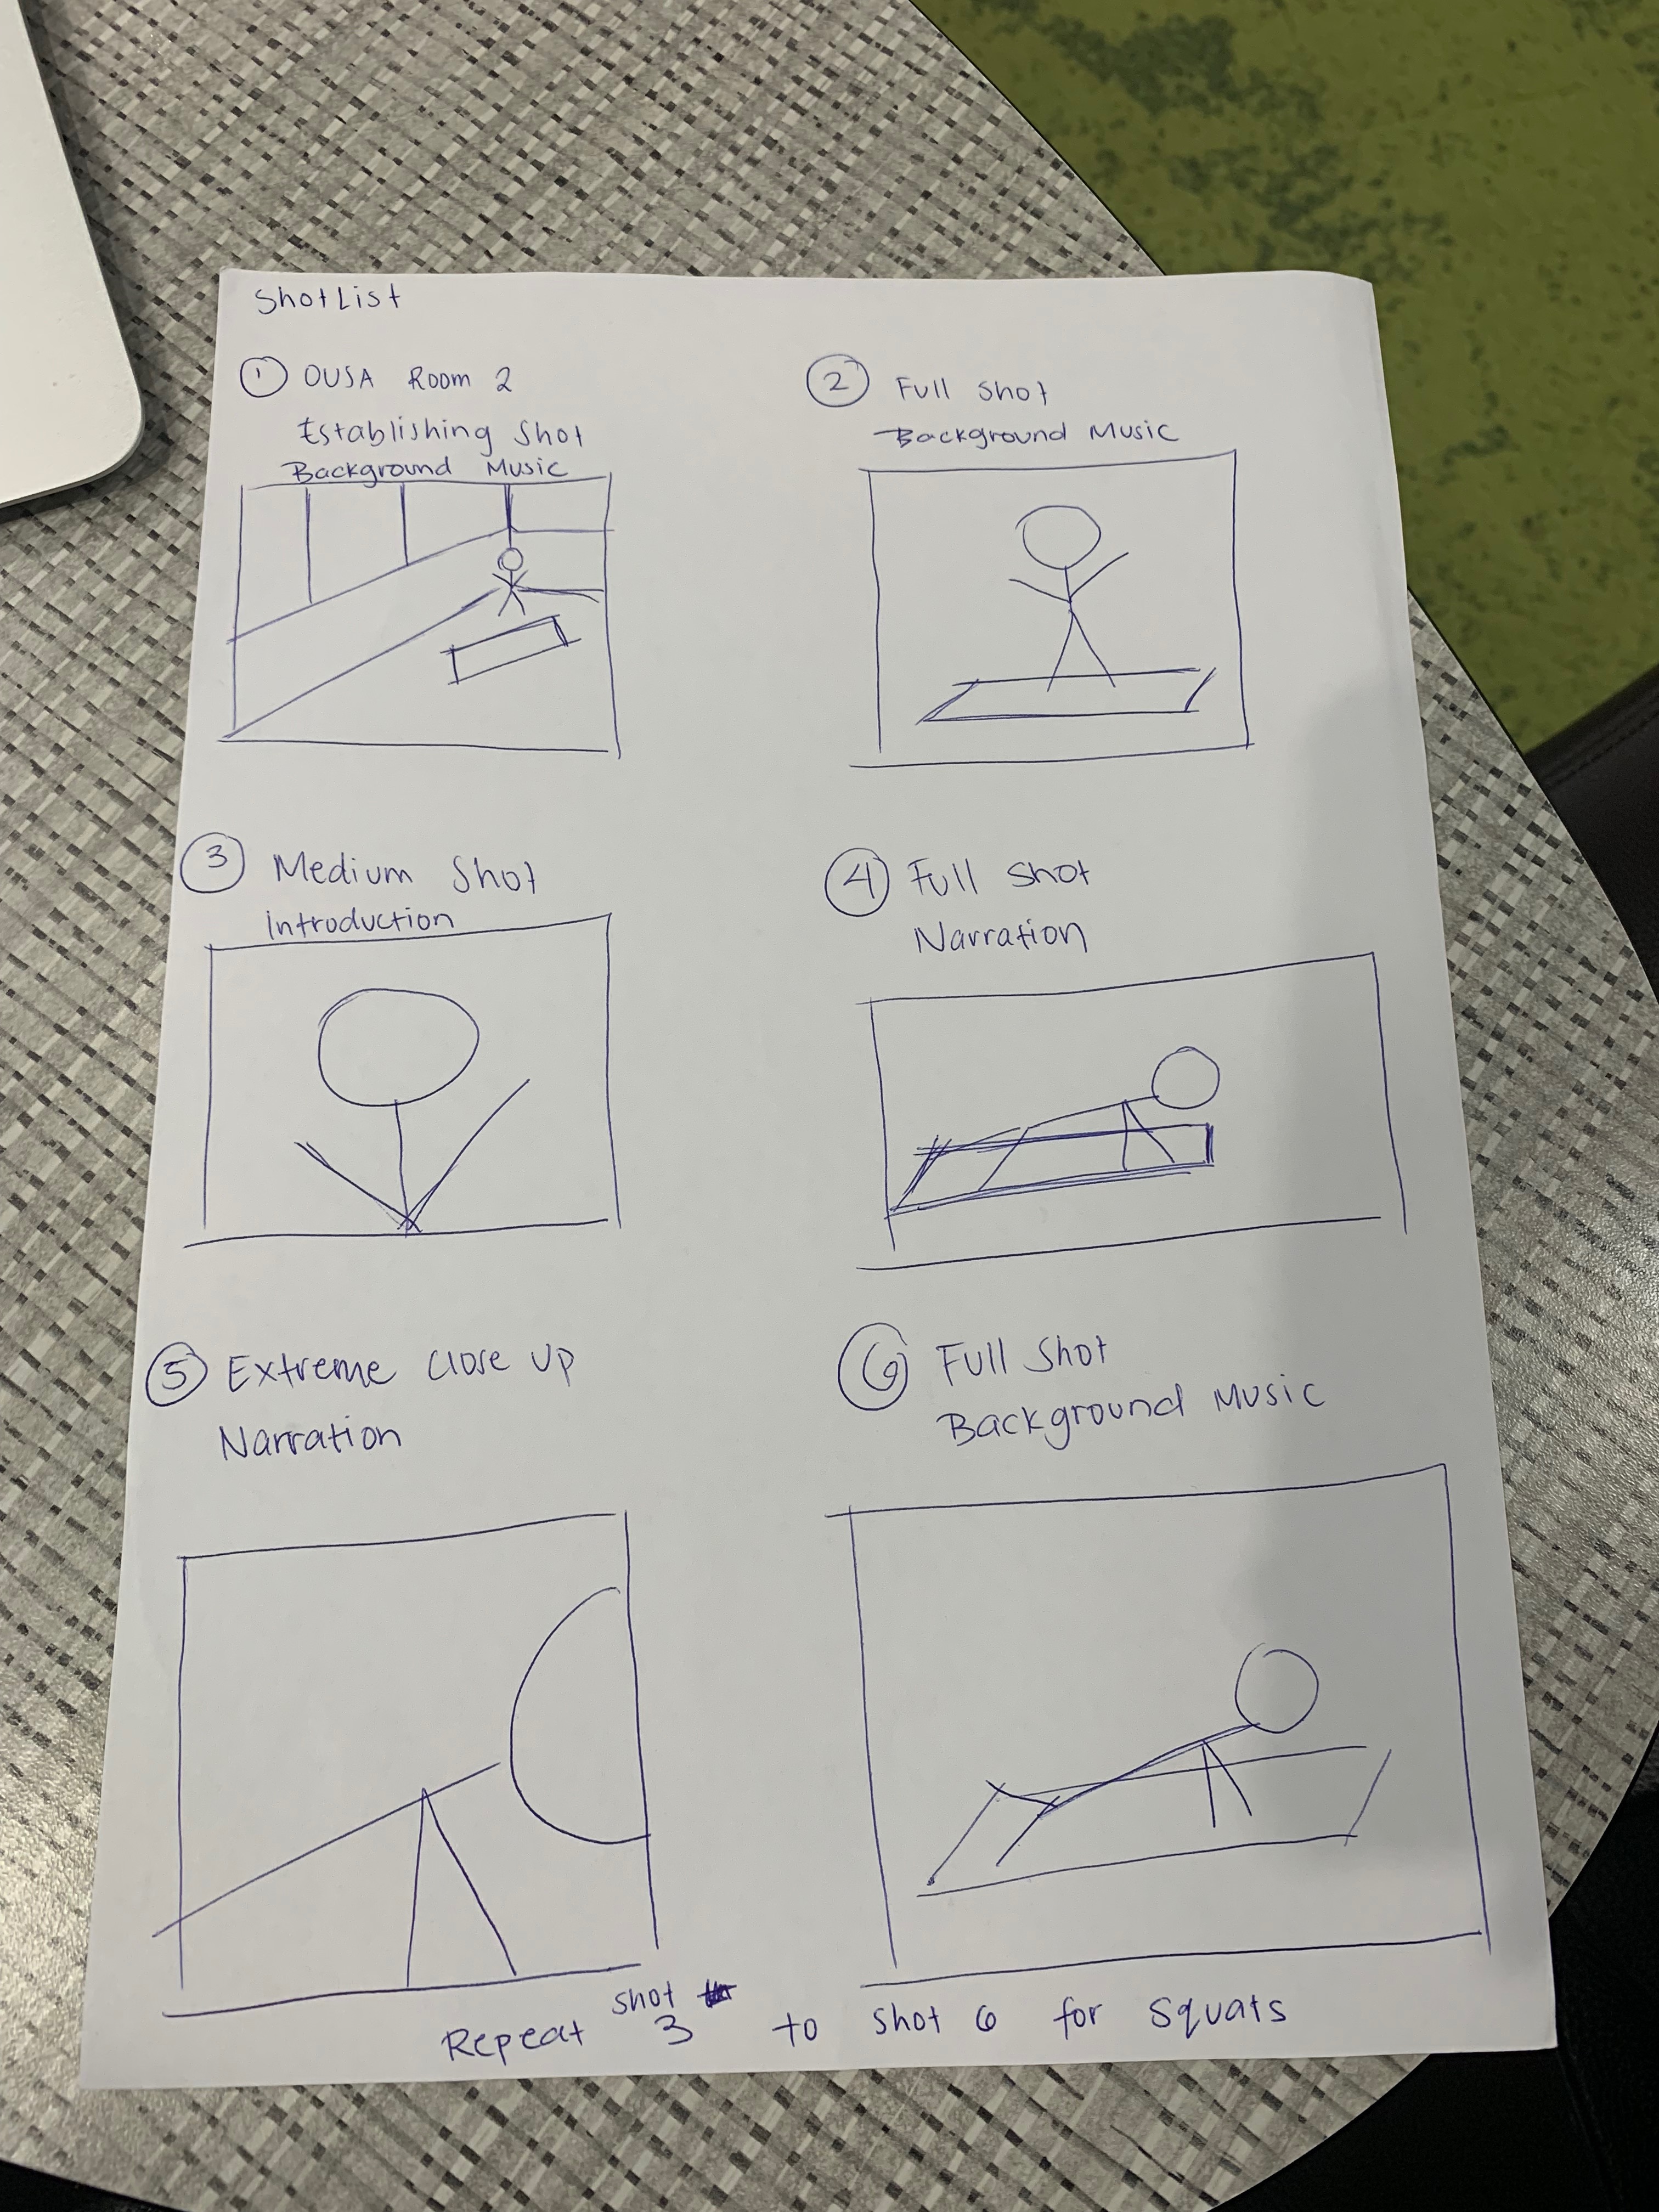 ShotList
① OUSA Room 2
Establishing Shot
Background Music
② Full Shot
Background Music
③ Medium Shot
Introduction
④ Full Shot
Narration
⑤ Extreme Close Up
Narration
⑥ Full Shot
Background Music
Repeat shot 3 to shot 6 for squats